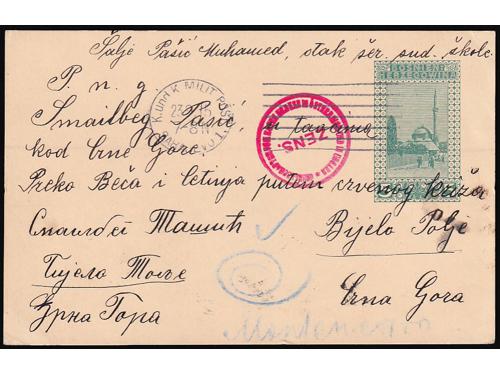 Šalje Pašić Muhamed, đak šer. sud. škole.
BOSNIEN-
HERZEGOWINA
P. n. g.
K. und K. MILIT. POST
Smailbeg Pašić, u
ZENS.
kod Crne Gore
Preko Beča i Cetinja putem crvenog križa
Смаилбег Пашић
Bijelo Polje
Бијело Поље
Црна Гора
Crna Gora
Montenegro